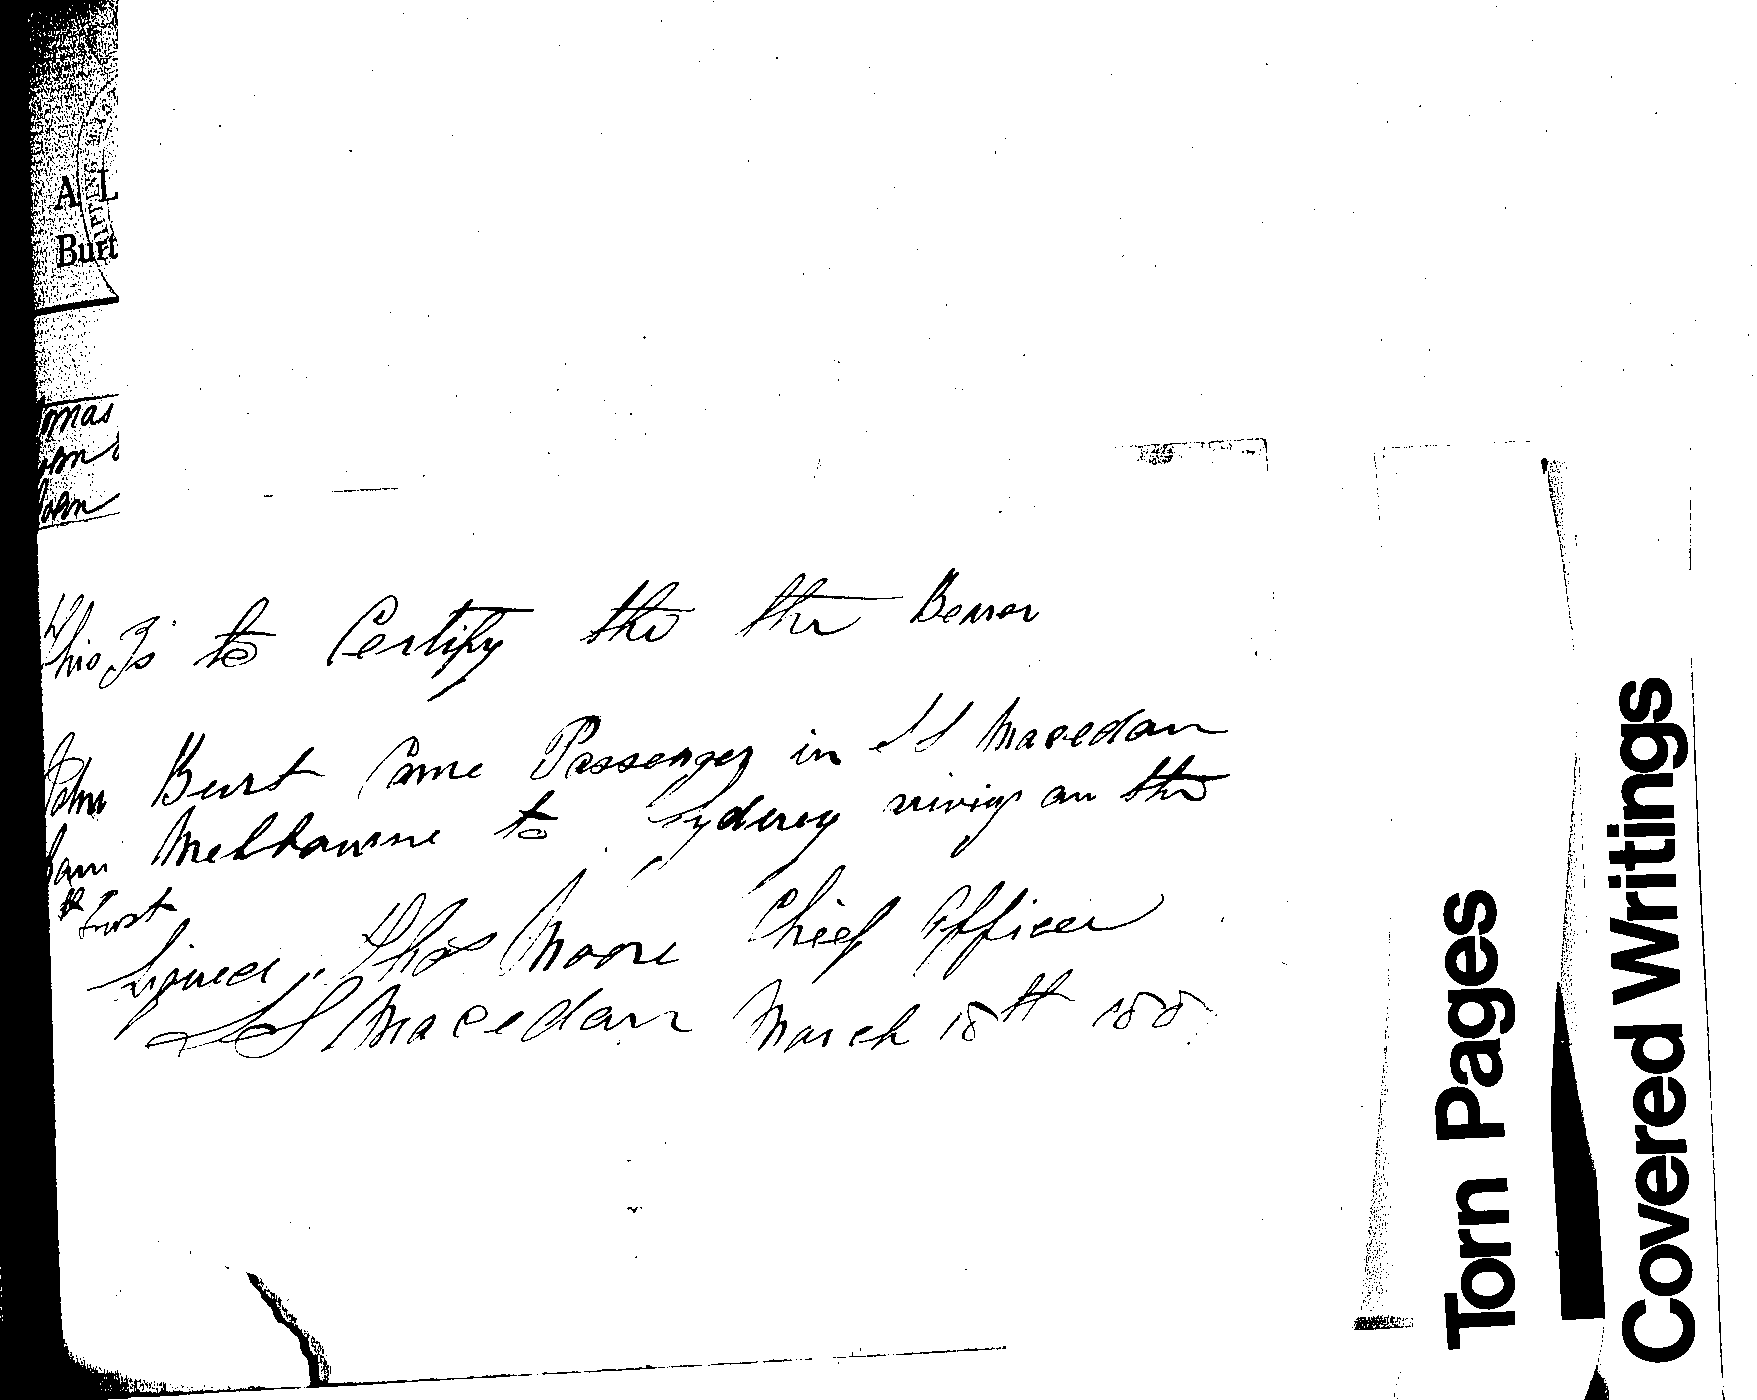 A L
Burt
omas
John
This Is to Certify the the Bearer
John Burt Came Passenger in SS Macedon
from Melbourne to Sydney on the
Inst
Signed Thos Moore Chief Officer
SS Macedon March 18th 188
Torn Pages
Covered Writings